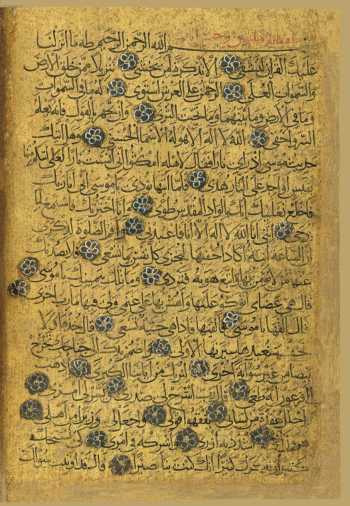 بسم الله الرحمن الرحيم طه ما انزلنا
عليك القران لتشقى الا تذكرة لمن يخشى تنزيلا ممن خلق الارض
والسموات العلى الرحمن على العرش استوى له ما فى السموات
وما فى الارض وما بينهما وما تحت الثرى وان تجهر بالقول فانه يعلم
السر واخفى الله لا اله الا هو له الاسماء الحسنى وهل اتيك
حديث موسى اذ راى نارا فقال لاهله امكثوا انى انست نارا لعلى اتيكم منها
بقبس او اجد على النار هدى فلما اتيها نودى يا موسى انى انا ربك
فاخلع نعليك انك بالواد المقدس طوى وانا اخترتك فاستمع لما
يوحى اننى انا الله لا اله الا انا فاعبدنى واقم الصلوة لذكرى
ان الساعة اتية اكاد اخفيها لتجزى كل نفس بما تسعى فلا يصدنك
عنها من لا يؤمن بها واتبع هويه فتردى وما تلك بيمينك يا موسى
قال هى عصاى اتوكؤا عليها واهش بها على غنمى ولى فيها مارب اخرى
قال القها يا موسى فالقيها فاذا هى حية تسعى قال خذها ولا
تخف سنعيدها سيرتها الاولى واضمم يدك الى جناحك تخرج
بيضاء من غير سوء اية اخرى لنريك من اياتنا الكبرى اذهب
الى فرعون انه طغى قال رب اشرح لى صدرى ويسر لى امرى
واحلل عقدة من لسانى يفقهوا قولى واجعل لى وزيرا من اهلى
هرون اخى اشدد به ازرى واشركه فى امرى كى نسبحك
كثيرا ونذكرك كثيرا انك كنت بنا بصيرا قال قد اوتيت سؤلك